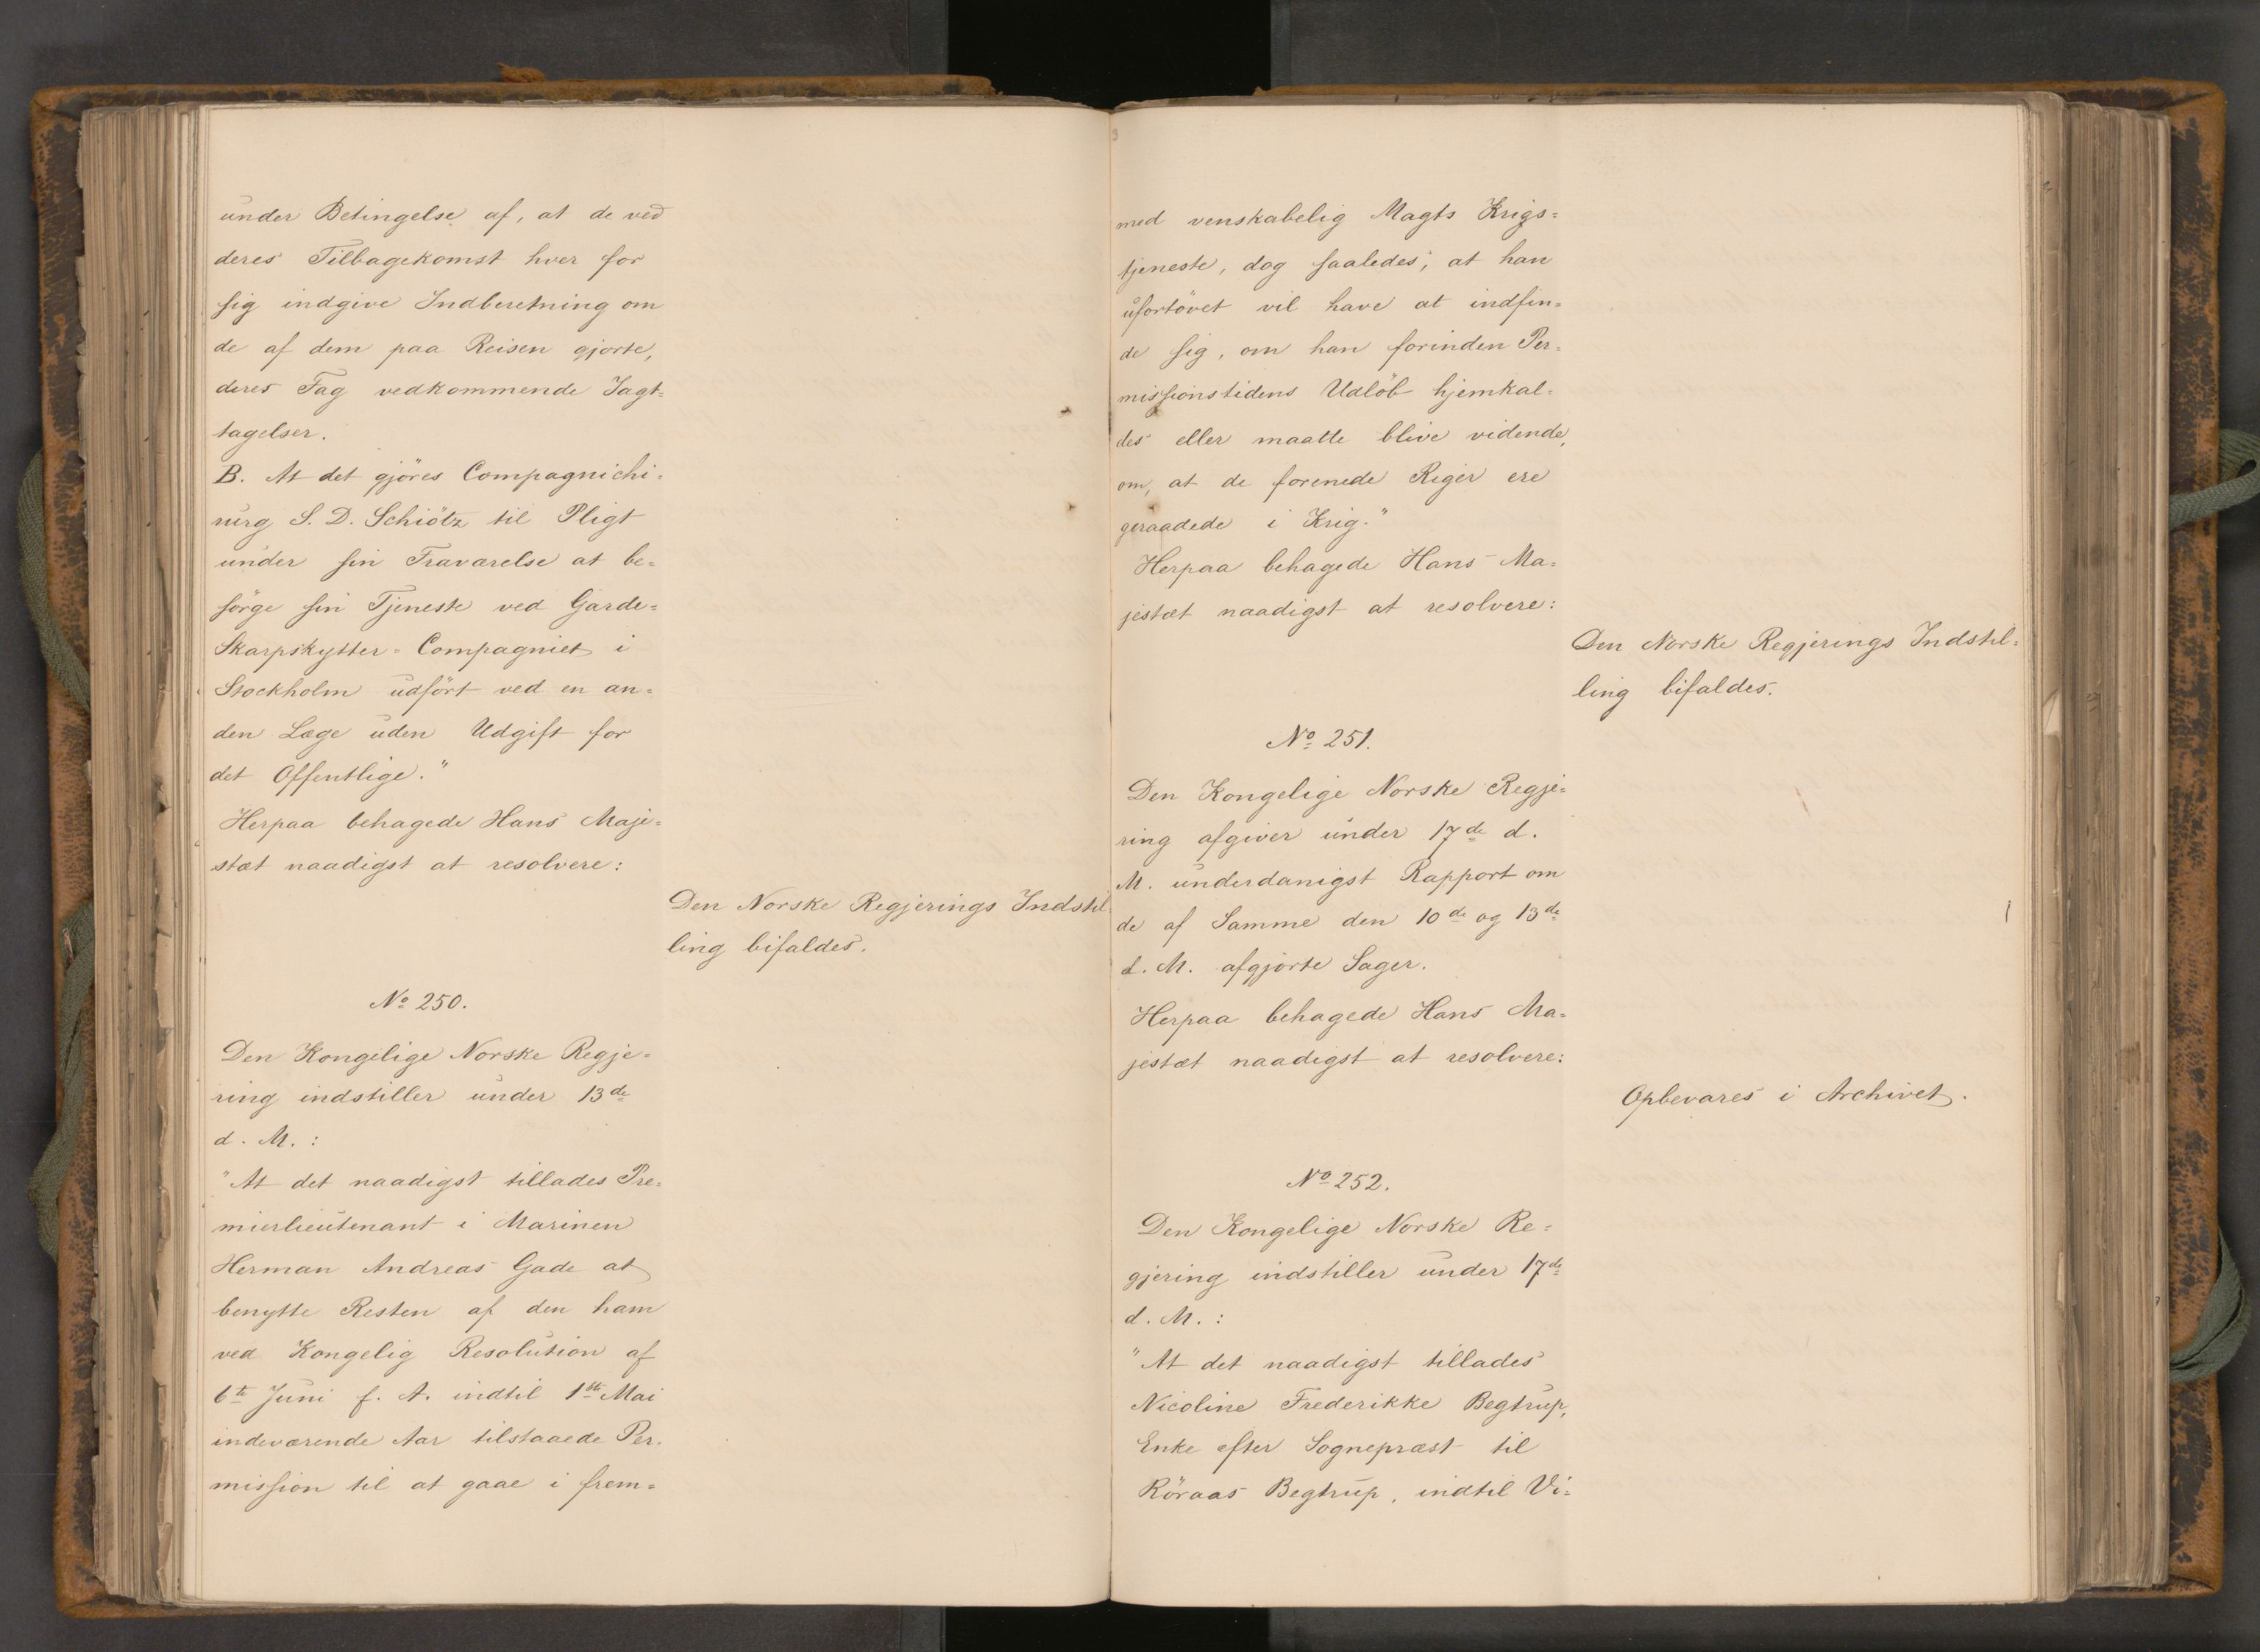 under Betingelse af, at de ved
deres Tilbagekomst hver for
sig indgive Indberetning om
de af dem paa Reisen gjorte,
deres Fag vedkommende Iagt-
tagelser.
B. At det gjöres Compagnichi-
rurg S. D. Schiötz til Pligt
under sin Fraværelse at be-
sörge sin Tjeneste ved Garde-
Skarpskytter-Compagniet i
Stockholm udfört ved en an-
den Læge uden Udgift for
det Offentlige."
Herpaa behagede Hans Maje-
stæt naadigst at resolvere:
Den Norske Regjerings Indstil-
ling bifaldes.
No 250.
Den Kongelige Norske Regje-
ring indstiller under 13de
d. M.:
"At det naadigst tillades Pre-
mierlieutenant i Marinen
Herman Andreas Gade at
benytte Resten af den ham
ved Kongelig Resolution af
6te Juni f. A. indtil 1ste Mai
indeværende Aar tilstaaede Per-
mission til at gaae i frem-
med venskabelig Magts Krigs-
tjeneste, dog saaledes, at han
ufortövet vil have at indfin-
de sig, om han forinden Per-
missionstidens Udlöb hjemkal-
des eller maatte blive vidende,
om, at de forenede Riger ere
geraadede i Krig."
Herpaa behagede Hans Ma-
jestæt naadigst at resolvere:
Den Norske Regjerings Indstil-
ling bifaldes.
No 251.
Den Kongelige Norske Regje-
ring afgiver under 17de d.
M. underdanigst Rapport om
de af Samme den 10de og 13de
d. M. afgjorte Sager.
Herpaa behagede Hans Ma-
jestæt naadigst at resolvere:
Opbevares i Archivet.
No 252.
Den Kongelige Norske Re-
gjering indstiller under 17de
d. M.:
"At det naadigst tillades
Nicoline Frederikke Begtrup,
Enke efter Sognepræst til
Röraas Begtrup, indtil Vi-